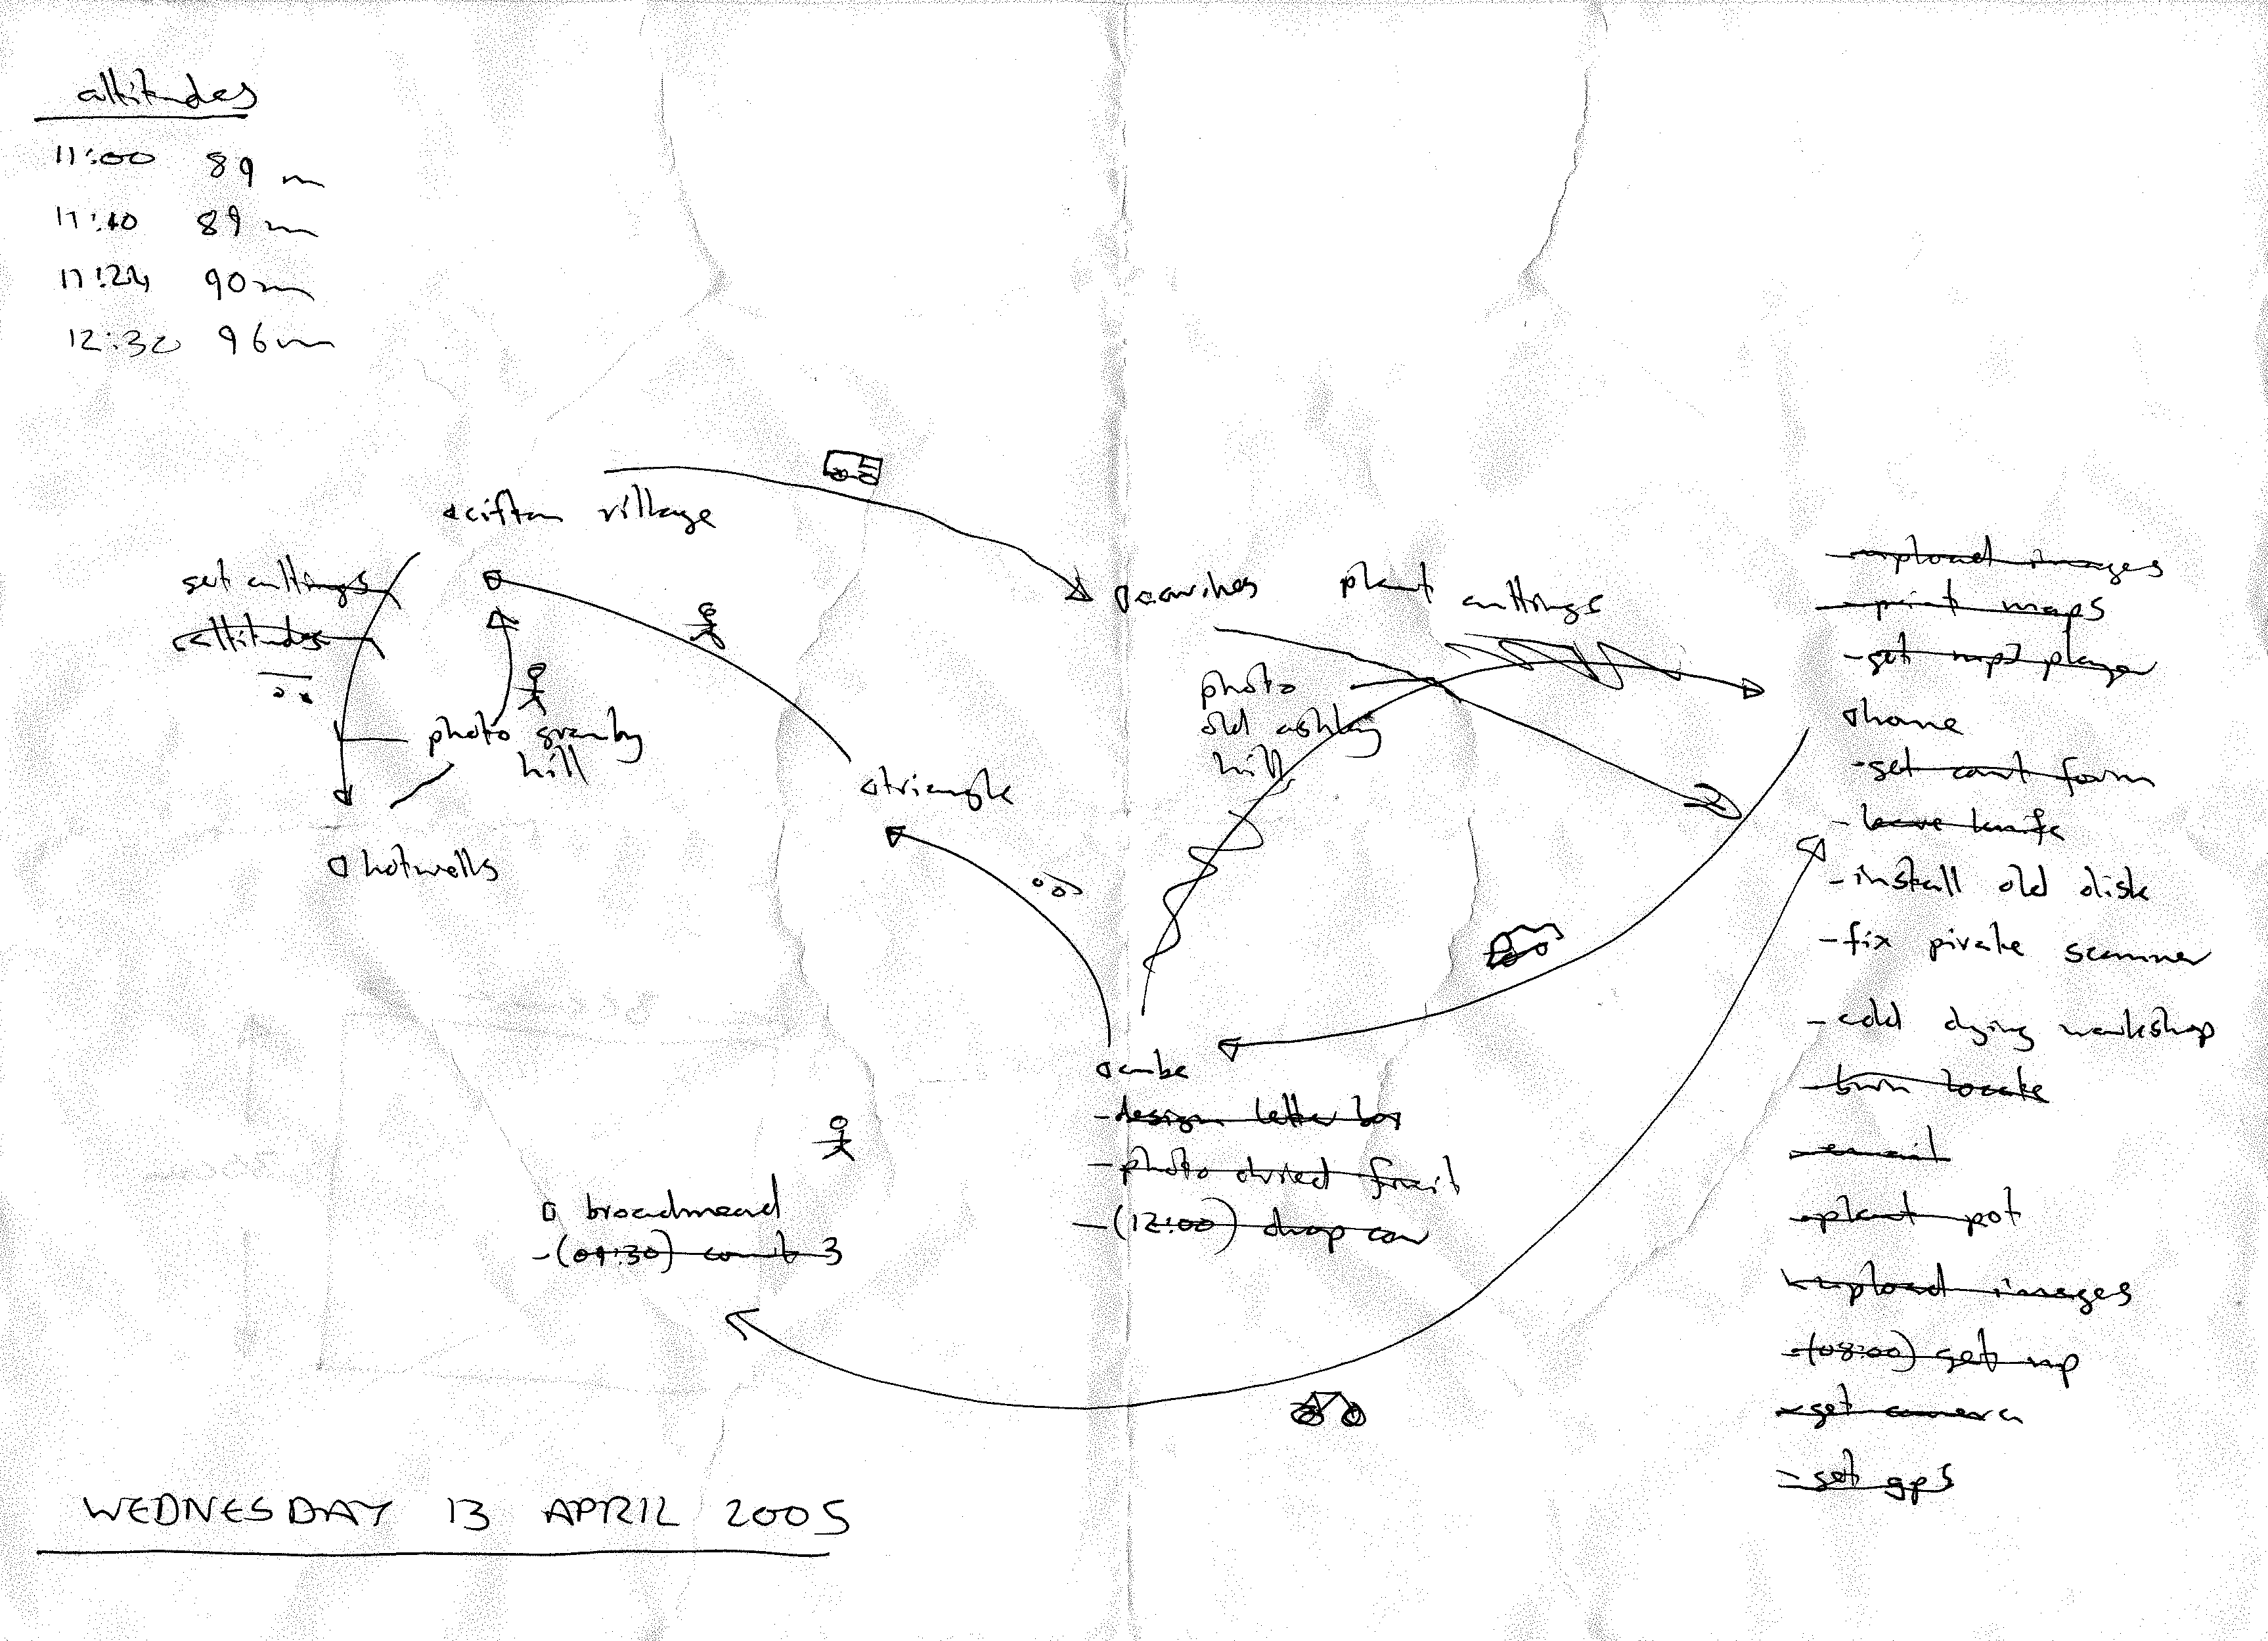 altitudes
11:00 89 m
11:10 89 m
11:24 90 m
12:30 96 m
clifton village
get cuttings
altitudes
photo granby
hill
hotwells
triangle
plant cuttings
photo
old ashley
hill
- upload images
- print maps
- get mp3 player
home
- get court form
- leave knife
- install old disk
- fix pirate scanner
- add dying workshop
- burn locate
- email
- plant pot
- upload images
- (08:00) get up
- get camera
- get gps
cube
- design letter box
- photo dried fruit
- (12:00) drop car
broadmead
- (09:30) court 3
WEDNESDAY 13 APRIL 2005